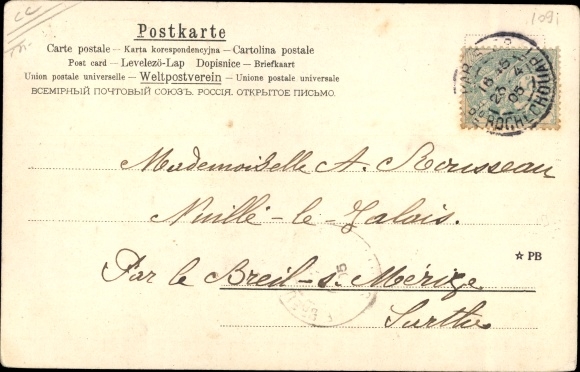 Postkarte
Carte postale – Karta korespondencyjna – Cartolina postale
Post card – Levelező-Lap Dopisnice – Briefkaart
Union postale universelle – Weltpostverein – Unione postale universale
ВСЕМІРНЫЙ ПОЧТОВЫЙ СОЮЗЪ. РОССІЯ. ОТКРЫТОЕ ПИСЬМО.
Mademoiselle A. Rousseau
Nuillé-le-Jalais.
☆ PB
Par le Breil-s. Mérize
Sarthe